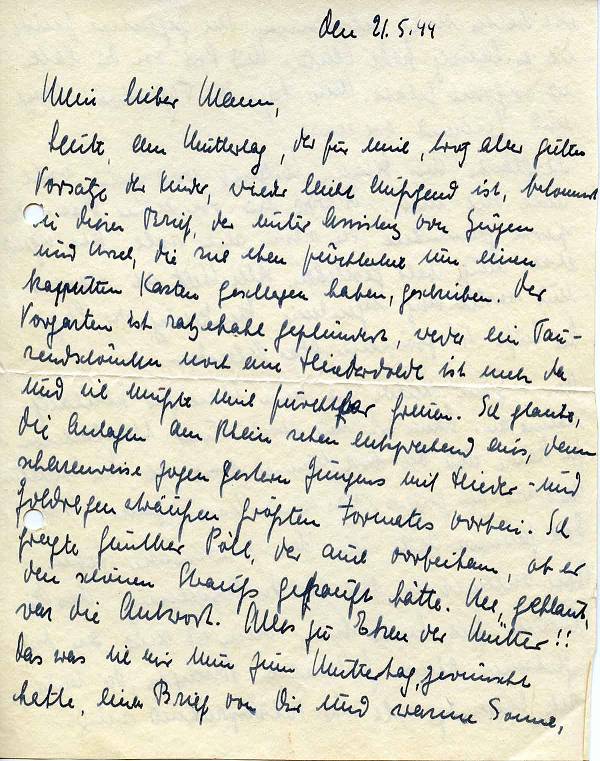 den 21.5.44
Mein lieber Mann,
heute, am Muttertag, der für mich, trotz aller guten
Vorsätze der Kinder, wieder leicht aufregend ist, bekommst
du diesen Brief, der unter Assistenz von Jürgen
und Ursel, die sich eben fürchterlich um einen
kapputten Kasten geschlagen haben, geschrieben. Der
Vorgarten ist ratzekahl geplündert, weder ein Tau-
sendschönchen noch eine Fliederdolde ist mehr da
und ich mußte mich furchtbar freuen. Ich glaube,
die Anlagen am Rhein sehen entsprechend aus, denn
scharenweise zogen gestern Jungens mit Flieder- und
Goldregensträußen größten Formates vorbei. Ich
fragte Günther Pöll, der auch vorbeikam, ob er
den schönen Strauß gekauft hätte. Nee, "geklaut",
war die Antwort. Alles zu Ehren der Mutter!!
Das was ich mir nun zum Muttertag gewünscht
hatte, einen Brief von Dir und warme Sonne,